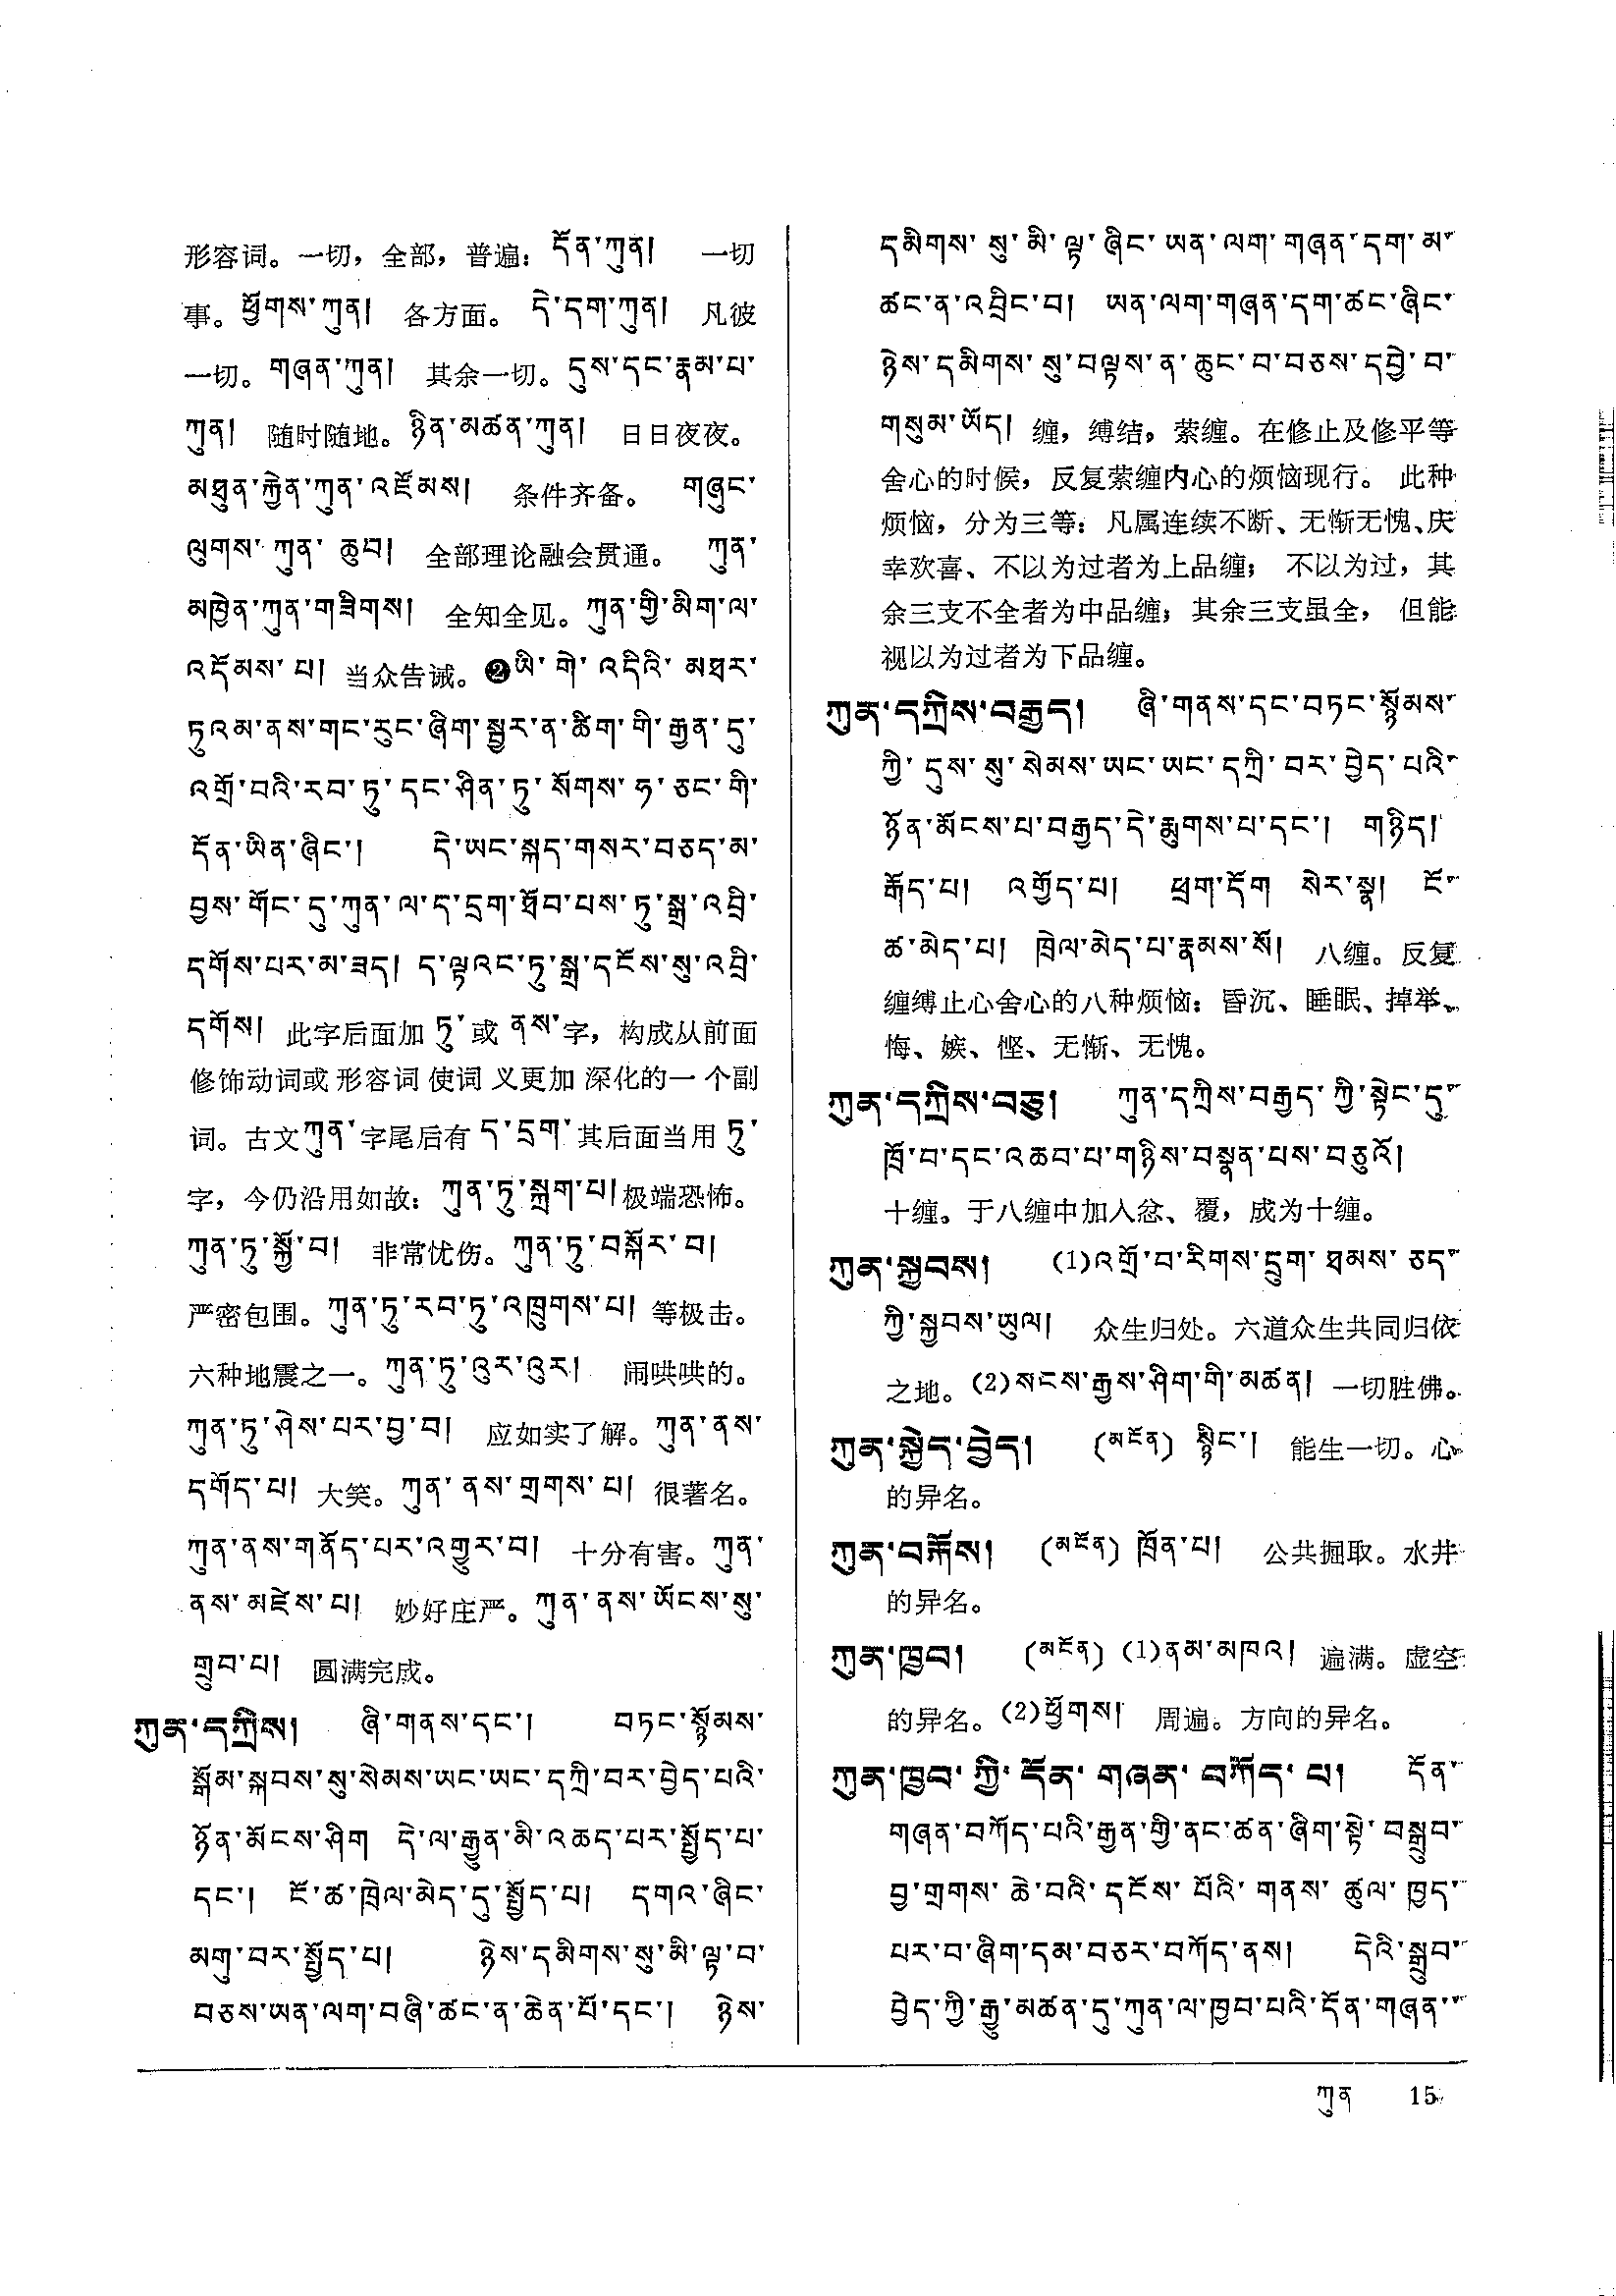 形容词。一切，全部，普遍：དོན་ཀུན། 一切
事。ཕྱོགས་ཀུན། 各方面。 དེ་དག་ཀུན། 凡彼
一切。གཞན་ཀུན། 其余一切。དུས་དང་རྣམ་པ་
ཀུན། 随时随地。ཉིན་མཚན་ཀུན། 日日夜夜。
མཐུན་རྐྱེན་ཀུན་འཛོམས། 条件齐备。 གཞུང་
ལུགས་ ཀུན་ ཆུབ། 全部理论融会贯通。 ཀུན་
མཁྱེན་ཀུན་གཟིགས། 全知全见。ཀུན་གྱི་མིག་ལ་
འདོམས་ པ། 当众告诫。❷ཡི་ གེ་ འདིའི་ མཐར་
ཏུའམ་ནས་གང་རུང་ཞིག་སྦྱར་ན་ཚིག་གི་རྒྱན་དུ་
འགྲོ་བའི་རབ་ཏུ་དང་ཤིན་ཏུ་ སོགས་ ཧ་ ཅང་གི་
དོན་ཡིན་ཞིང་། དེ་ཡང་སྐད་གསར་བཅད་མ་
བྱས་གོང་དུ་ཀུན་ལ་ད་དྲག་ཐོབ་པས་ཏུ་སྒྲ་འབྲི་
དགོས་པར་མ་ཟད། ད་ལྟའང་ཏུ་སྒྲ་དངོས་སུ་འབྲི་
དགོས། 此字后面加 ཏུ་ 或 ནས་字，构成从前面
修饰动词或 形容词 使词 义更加 深化的一 个副
词。古文ཀུན་字尾后有 ད་དྲག་其后面当用 ཏུ་
字，今仍沿用如故：ཀུན་ཏུ་སྐྲག་པ།极端恐怖。
ཀུན་ཏུ་སྐྱོ་བ། 非常忧伤。ཀུན་ཏུ་བསྐོར་བ།
严密包围。ཀུན་ཏུ་རབ་ཏུ་འཁྲུགས་པ། 等极击。
六种地震之一。ཀུན་ཏུ་འུར་འུར། 闹哄哄的。
ཀུན་ཏུ་ཤེས་པར་བྱ་བ། 应如实了解。ཀུན་ནས་
དགོད་པ། 大笑。ཀུན་ ནས་གྲགས་པ། 很著名。
ཀུན་ནས་གནོད་པར་འགྱུར་བ། 十分有害。ཀུན་
ནས་མཛེས་པ། 妙好庄严。ཀུན་ནས་ཡོངས་སུ་
གྲུབ་པ། 圆满完成。
ཀུན་དཀྲིས། ཞི་གནས་དང་། བཏང་སྙོམས་
སྒོམ་སྐབས་སུ་སེམས་ཡང་ཡང་དཀྲི་བར་བྱེད་པའི་
ཉོན་མོངས་ཤིག དེ་ལ་རྒྱུན་མི་འཆད་པར་སྤྱོད་པ་
དང་། ངོ་ཚ་ཁྲེལ་མེད་དུ་སྤྱོད་པ། དགའ་ཞིང་
མགུ་བར་སྤྱོད་པ། ཉེས་དམིགས་སུ་མི་ལྟ་བ་
བཅས་ཡན་ལག་བཞི་ཚང་ན་ཆེན་པོ་དང་། ཉེས་
དམིགས་ སུ་མི་ལྟ་ཞིང་ཡན་ལག་གཞན་དག་མ་
ཚང་ན་འབྲིང་བ། ཡན་ལག་གཞན་དག་ཚང་ཞིང་
ཉེས་དམིགས་སུ་བལྟས་ན་ཆུང་བ་བཅས་དབྱེ་བ་
གསུམ་ཡོད། 缠，缚结，萦缠。在修止及修平等
舍心的时候，反复萦缠内心的烦恼现行。 此种
烦恼，分为三等：凡属连续不断、无惭无愧、庆
幸欢喜、不以为过者为上品缠； 不以为过，其
余三支不全者为中品缠；其余三支虽全， 但能
视以为过者为下品缠。
ཀུན་དཀྲིས་བརྒྱད། ཞི་གནས་དང་བཏང་སྙོམས་
ཀྱི་ དུས་ སུ་སེམས་ཡང་ཡང་དཀྲི་བར་བྱེད་པའི་
ཉོན་མོངས་པ་བརྒྱད་དེ་རྨུགས་པ་དང་། གཉིད།
རྒོད་པ། འགྱོད་པ། ཕྲག་དོག སེར་སྣ། ངོ་
ཚ་མེད་པ། ཁྲེལ་མེད་པ་རྣམས་སོ། 八缠。反复
缠缚止心舍心的八种烦恼：昏沉、睡眠、掉举、
悔、嫉、悭、无惭、无愧。
ཀུན་དཀྲིས་བཅུ། ཀུན་དཀྲིས་བརྒྱད་ཀྱི་སྟེང་དུ་
ཁྲོ་བ་དང་འཆབ་པ་གཉིས་བསྣན་པས་བཅུའོ།
十缠。于八缠中加入忿、覆，成为十缠。
ཀུན་སྐྱབས། (1)འགྲོ་བ་རིགས་དྲུག་ཐམས་ཅད་
ཀྱི་སྐྱབས་ཡུལ། 众生归处。六道众生共同归依
之地。(2)སངས་རྒྱས་ཤིག་གི་མཚན། 一切胜佛。
ཀུན་སྐྱེད་བྱེད། (མངོན) སྙིང་། 能生一切。心
的异名。
ཀུན་བརྐོས། (མངོན) ཁྲོན་པ། 公共掘取。水井
的异名。
ཀུན་ཁྱབ། (མངོན) (1)ནམ་མཁའ། 遍满。虚空
的异名。(2)ཕྱོགས། 周遍。方向的异名。
ཀུན་ཁྱབ་ཀྱི་དོན་གཞན་བཀོད་པ། དོན་
གཞན་བཀོད་པའི་རྒྱན་གྱི་ནང་ཚན་ཞིག་སྟེ་བསྒྲུབ་
བྱ་གྲགས་ཆེ་བའི་དངོས་པོའི་གནས་ཚུལ་ཁྱད་
པར་བ་ཞིག་དམ་བཅར་བཀོད་ནས། དེའི་སྒྲུབ་
བྱེད་ཀྱི་རྒྱུ་མཚན་དུ་ཀུན་ལ་ཁྱབ་པའི་དོན་གཞན་
ཀུན 15